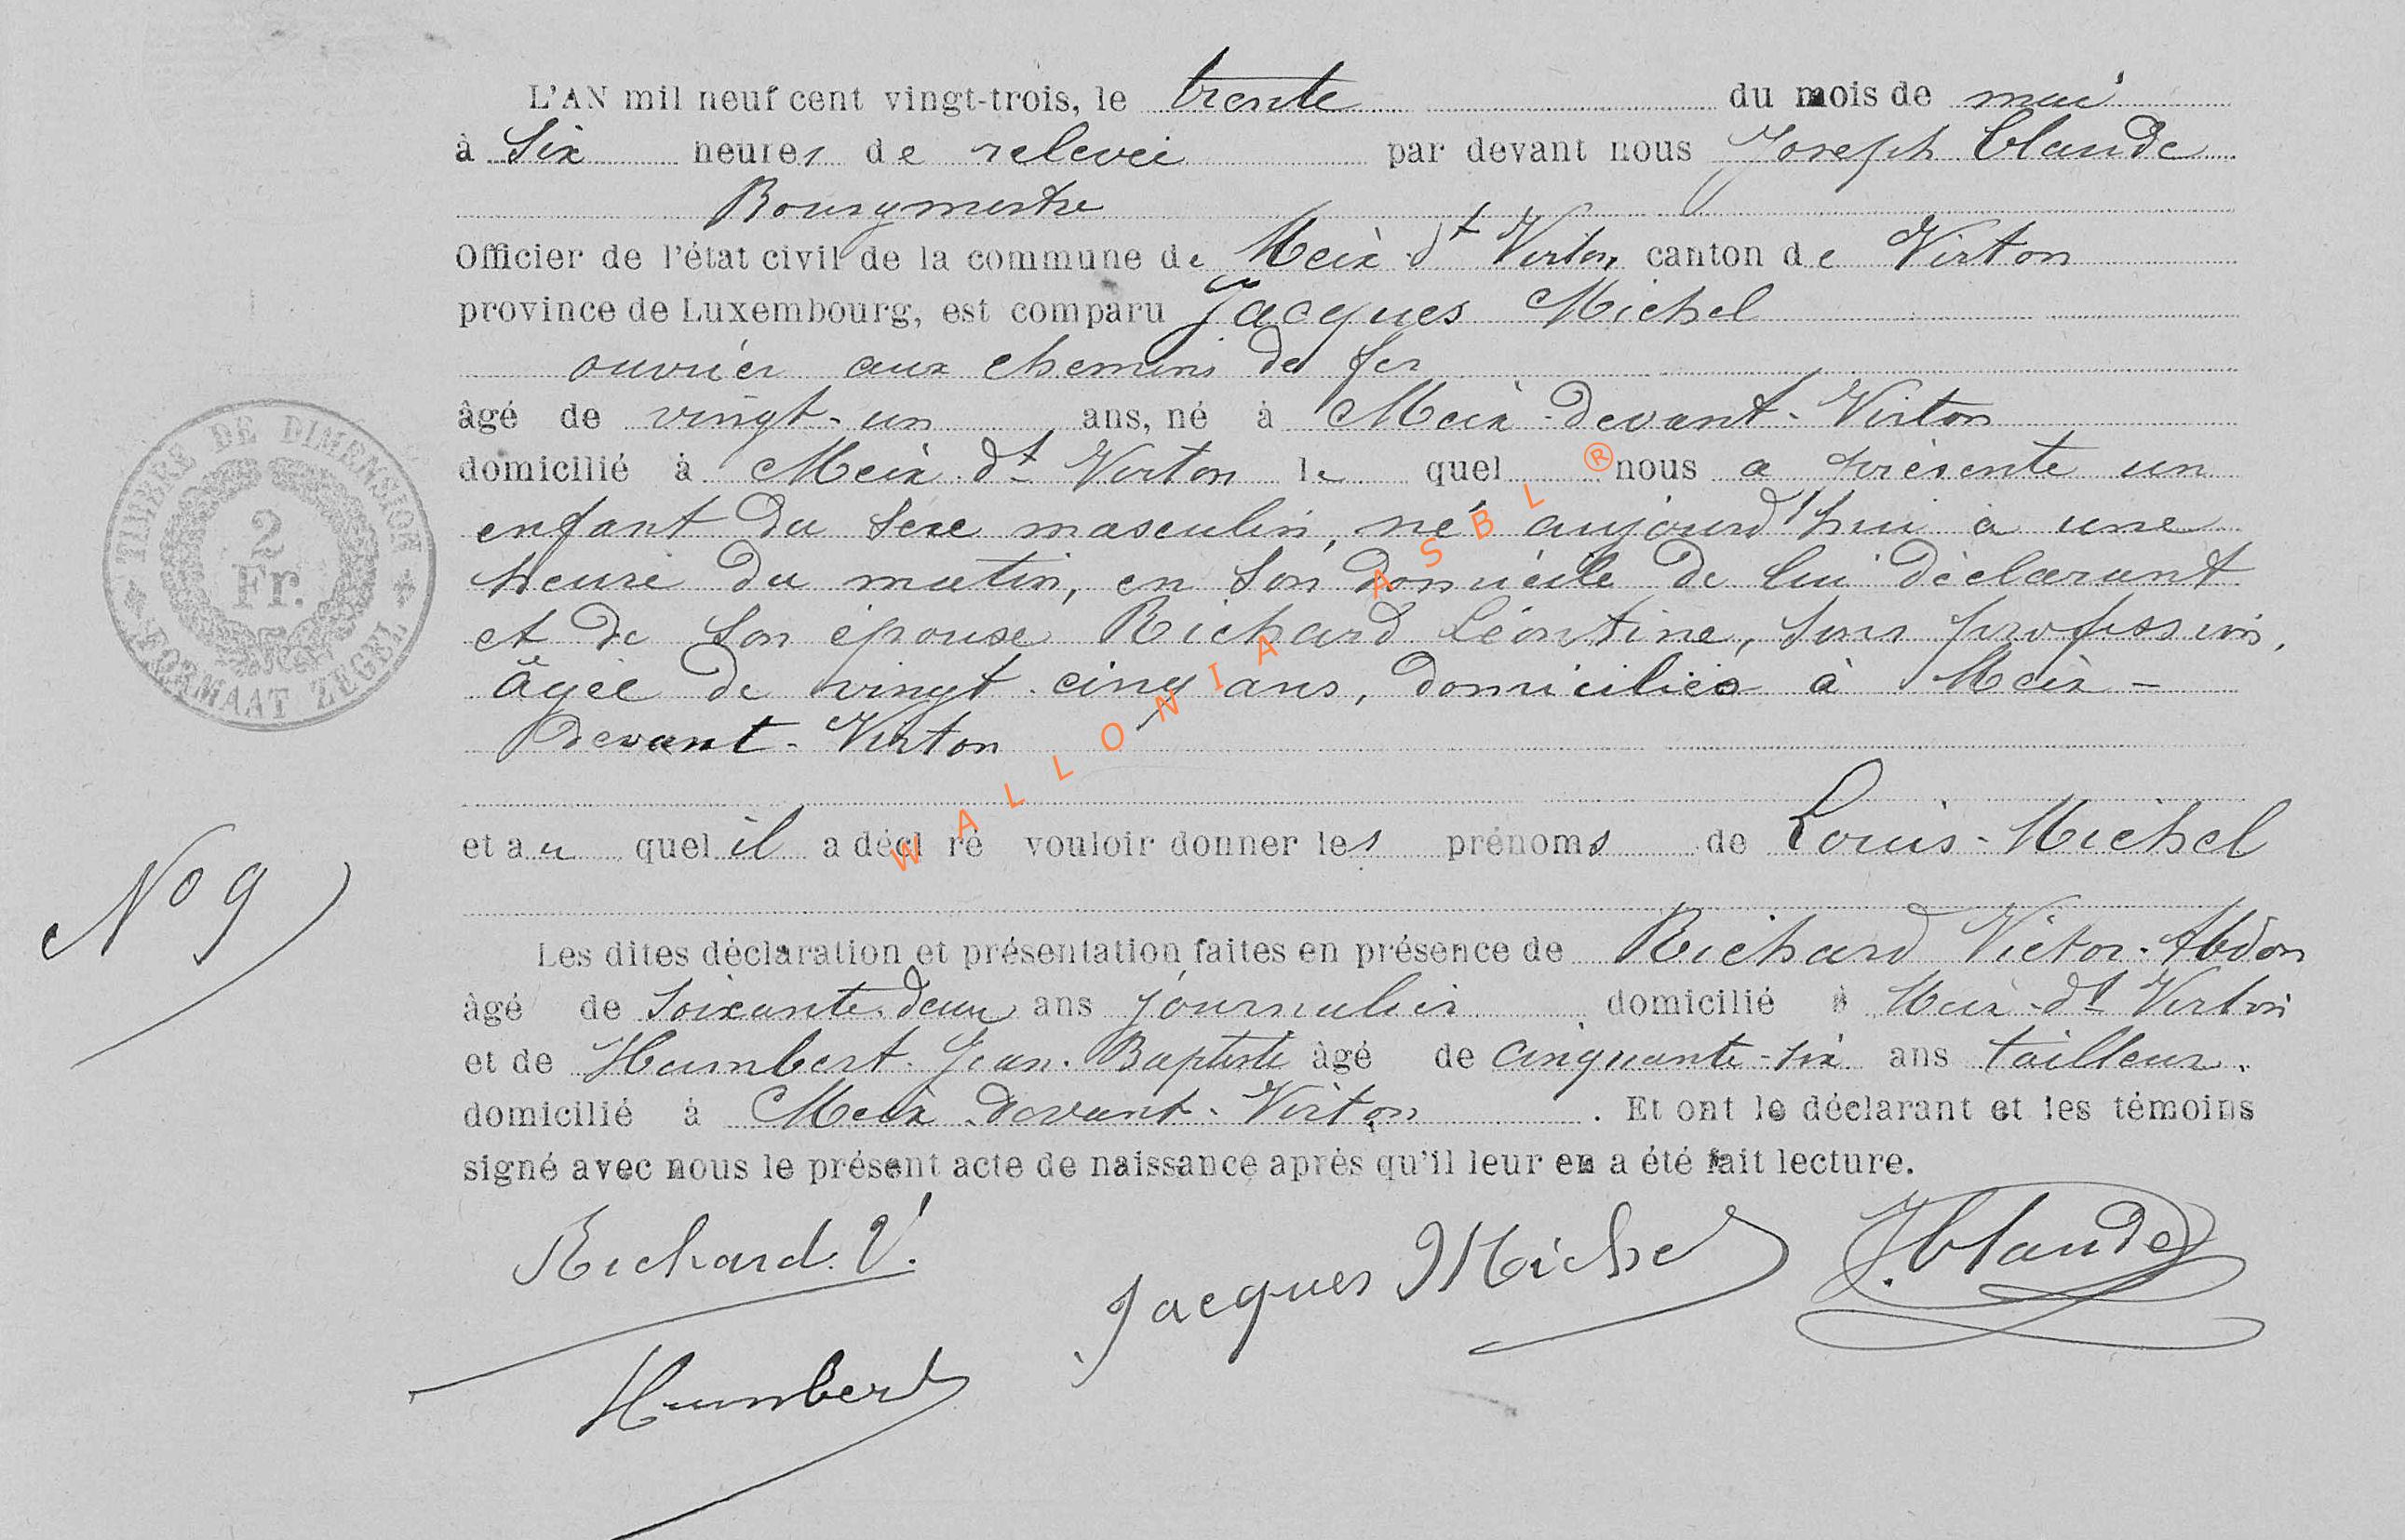 L'AN mil neuf cent vingt-trois, le trente du mois de mai
à six heures de relevée par devant nous Joseph Claude
Bourgmestre
Officier de l'état civil de la commune de Meix-dt Virton canton de Virton
province de Luxembourg, est comparu Jacques Michel
ouvrier aux chemins de fer
âgé de vingt-un ans, né à Meix-devant-Virton
domicilié à Meix-dt Virton le quel nous a présenté un
enfant du sexe masculin, né aujourd'hui à une
heure du matin, en son domicile de lui déclarant
et de son épouse Richard Léontine, sans profession,
âgée de vingt-cinq ans, domiciliée à Meix-
Devant-Virton
et au quel il a décl ré vouloir donner les prénoms de Louis-Michel
No 9
Les dites déclaration et présentation faites en présence de Richard Victor-Abdon
âgé de soixante-deux ans journalier domicilié à Meix-dt Virton
et de Humbert Jean-Baptiste âgé de cinquante-six ans tailleur,
domicilié à Meix-devant-Virton. Et ont le déclarant et les témoins
signé avec nous le présent acte de naissance après qu'il leur en a été fait lecture.
Richard. V.
Jacques Michel
J. Claude
Humbert
TIMBRE DE DIMENSION
2
Fr.
FORMAAT ZEGEL
WALLONIA ASBL ®